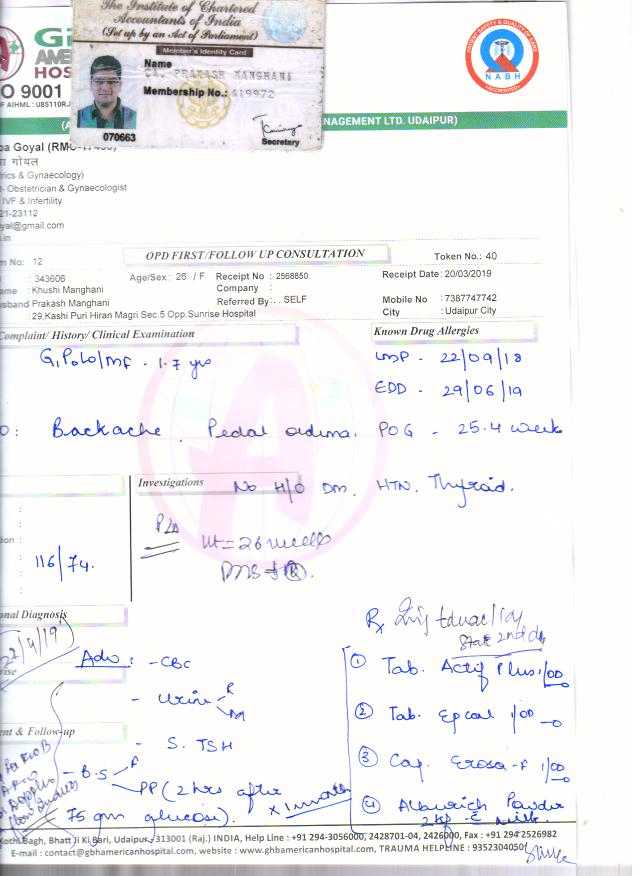 The Institute of Chartered
Accountants of India
(Set up by an Act of Parliament)
Member's Identity Card
Name
CA. PRAKASH MANGHANI
Membership No.: 419972
070663
Secretary
PATIENT SAFETY & QUALITY OF CARE
NABH
ACCREDITED
G
AME
HOS
O 9001
F AIHML : U85110RJ
(A
NAGEMENT LTD. UDAIPUR)
pa Goyal (RMC
ा गोयल
rics & Gynaecology)
t- Obstetrician & Gynaecologist
IVF & Infertility
21-23112
yal@gmail.com
.in
m No: 12
OPD FIRST/FOLLOW UP CONSULTATION
Token No.: 40
: 343606
Age/Sex : 26 / F
Receipt No : 2568850
Receipt Date: 20/03/2019
ame : Khushi Manghani
Company :
usband Prakash Manghani
Referred By : . SELF
Mobile No : 7387747742
: 29,Kashi Puri Hiran Magri Sec.5 Opp.Sunrise Hospital
City : Udaipur City
Complaint/ History/ Clinical Examination
Known Drug Allergies
G1P0L0/MF - 1.7 yrs
LMP - 22/09/18
EDD - 29/06/19
O: Backache, Pedal oedema. POG - 25.4 week
Investigations
No H/O DM, HTN, Thyroid.
P/A
ut = 26 weeks
tion :
116/74.
onal Diagnosis
Rx
Stat 2nd
Adv : - CBC
① Tab. Actif Plus 1/OD
- Urine R
M
② Tab. Epcal 1/OD
ent & Follow-up
- S. TSH
③ Cap. 1/OD
- B.S F
PP (2 hrs after
75 gm glucose).
x 1 month
④ Powder
Milk.
Kothi Bagh, Bhatt Ji Ki Bari, Udaipur, 313001 (Raj.) INDIA, Help Line : +91 294-3056000, 2428701-04, 2426000, Fax : +91 294 2526982
E-mail : contact@gbhamericanhospital.com, website : www.gbhamericanhospital.com, TRAUMA HELPLINE : 9352304050